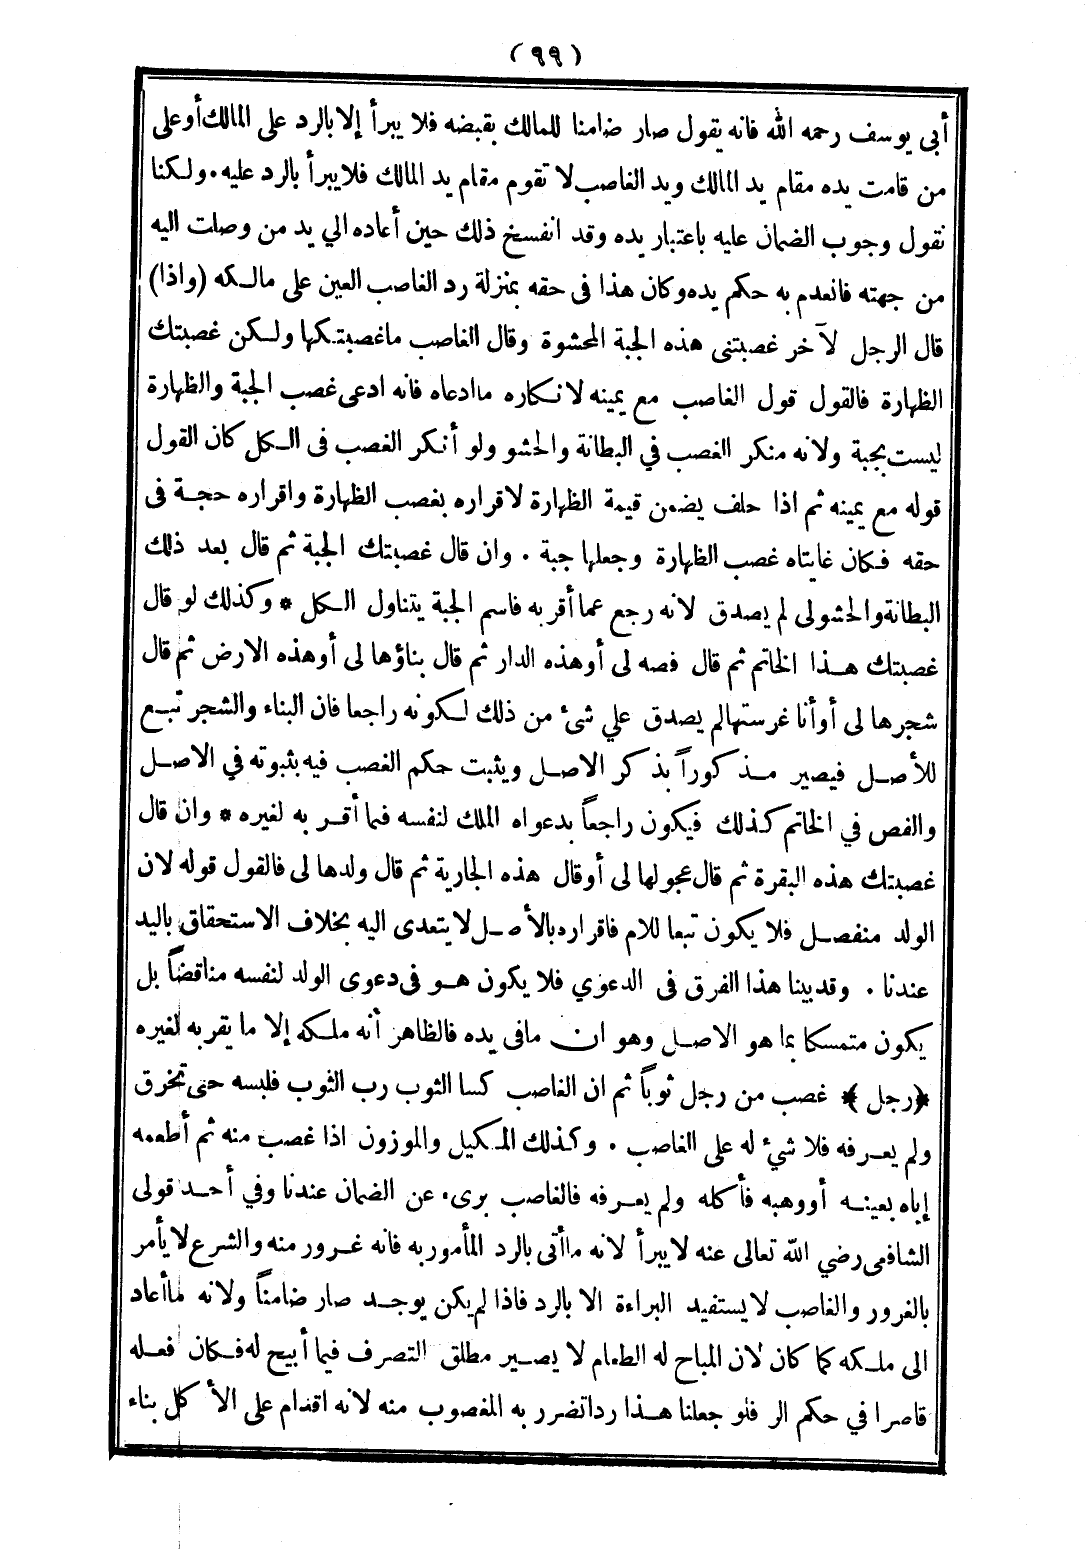 (٩٩)
أبى يوسف رحمه الله فانه يقول صار ضامنا للمالك بقبضه فلا يبرأ إلا بالرد على المالك أو على
من قامت يده مقام يد المالك ويد الغاصب لا تقوم مقام يد المالك فلا يبرأ بالرد عليه . ولكنا
نقول وجوب الضمان عليه باعتبار يده وقد انفسخ ذلك حين أعاده الي يد من وصلت اليه
من جهته فانعدم به حكم يده وكان هذا فى حقه بمنزلة رد الغاصب العين على مالكه (واذا)
قال الرجل لآخر غصبتنى هذه الجبة المحشوة وقال الغاصب ماغصبتكها ولكن غصبتك
الظهارة فالقول قول الغاصب مع يمينه لانكاره ماادعاه فانه ادعى غصب الجبة والظهارة
ليست بجبة ولانه منكر الغصب في البطانة والحشو ولو أنكر الغصب فى الكل كان القول
قوله مع يمينه ثم اذا حلف يضمن قيمة الظهارة لاقراره بغصب الظهارة واقراره حجة فى
حقه فكان غايتاه غصب الظهارة وجعلها جبة . وان قال غصبتك الجبة ثم قال بعد ذلك
البطانة والحشولى لم يصدق لانه رجع عما أقر به فاسم الجبة يتناول الكل * وكذلك لو قال
غصبتك هذا الخاتم ثم قال فصه لى أوهذه الدار ثم قال بناؤها لى أوهذه الارض ثم قال
شجرها لى أوأنا غرستها لم يصدق علي شئ من ذلك لكونه راجعا فان البناء والشجر تبع
للأصل فيصير مذكوراً بذكر الاصل ويثبت حكم الغصب فيه بثبوته في الاصل
والفص في الخاتم كذلك فيكون راجعاً بدعواه الملك لنفسه فيما أقر به لغيره * وان قال
غصبتك هذه البقرة ثم قال عجولها لى أوقال هذه الجارية ثم قال ولدها لى فالقول قوله لان
الولد منفصل فلا يكون تبعا للام فاقراره بالأصل لا يتعدى اليه بخلاف الاستحقاق باليد
عندنا . وقد بينا هذا الفرق فى الدعوي فلا يكون هو فى دعوى الولد لنفسه مناقضاً بل
يكون متمسكا بما هو الاصل وهو ان مافى يده فالظاهر أنه ملكه إلا ما يقر به لغيره
﴿رجل﴾ غصب من رجل ثوباً ثم ان الغاصب كسا الثوب رب الثوب فلبسه حتى تخرق
ولم يعرفه فلا شيء له على الغاصب . وكذلك المكيل والموزون اذا غصب منه ثم أطعمه
إياه بعينه أو وهبه فأكله ولم يعرفه فالغاصب برىء عن الضمان عندنا وفي أحد قولى
الشافعى رضي الله تعالى عنه لا يبرأ لانه ماأتى بالرد المأمور به فانه غرور منه والشرع لا يأمر
بالغرور والغاصب لا يستفيد البراءة الا بالرد فاذا لم يكن يوجد صار ضامناً ولانه ماأعاد
الى ملكه كما كان لان المباح له الطعام لا يصير مطلق التصرف فيما أبيح له فكان فعله
قاصرا في حكم الر فلو جعلنا هذا ردا تضرر به المغصوب منه لانه اقدام على الأكل بناء